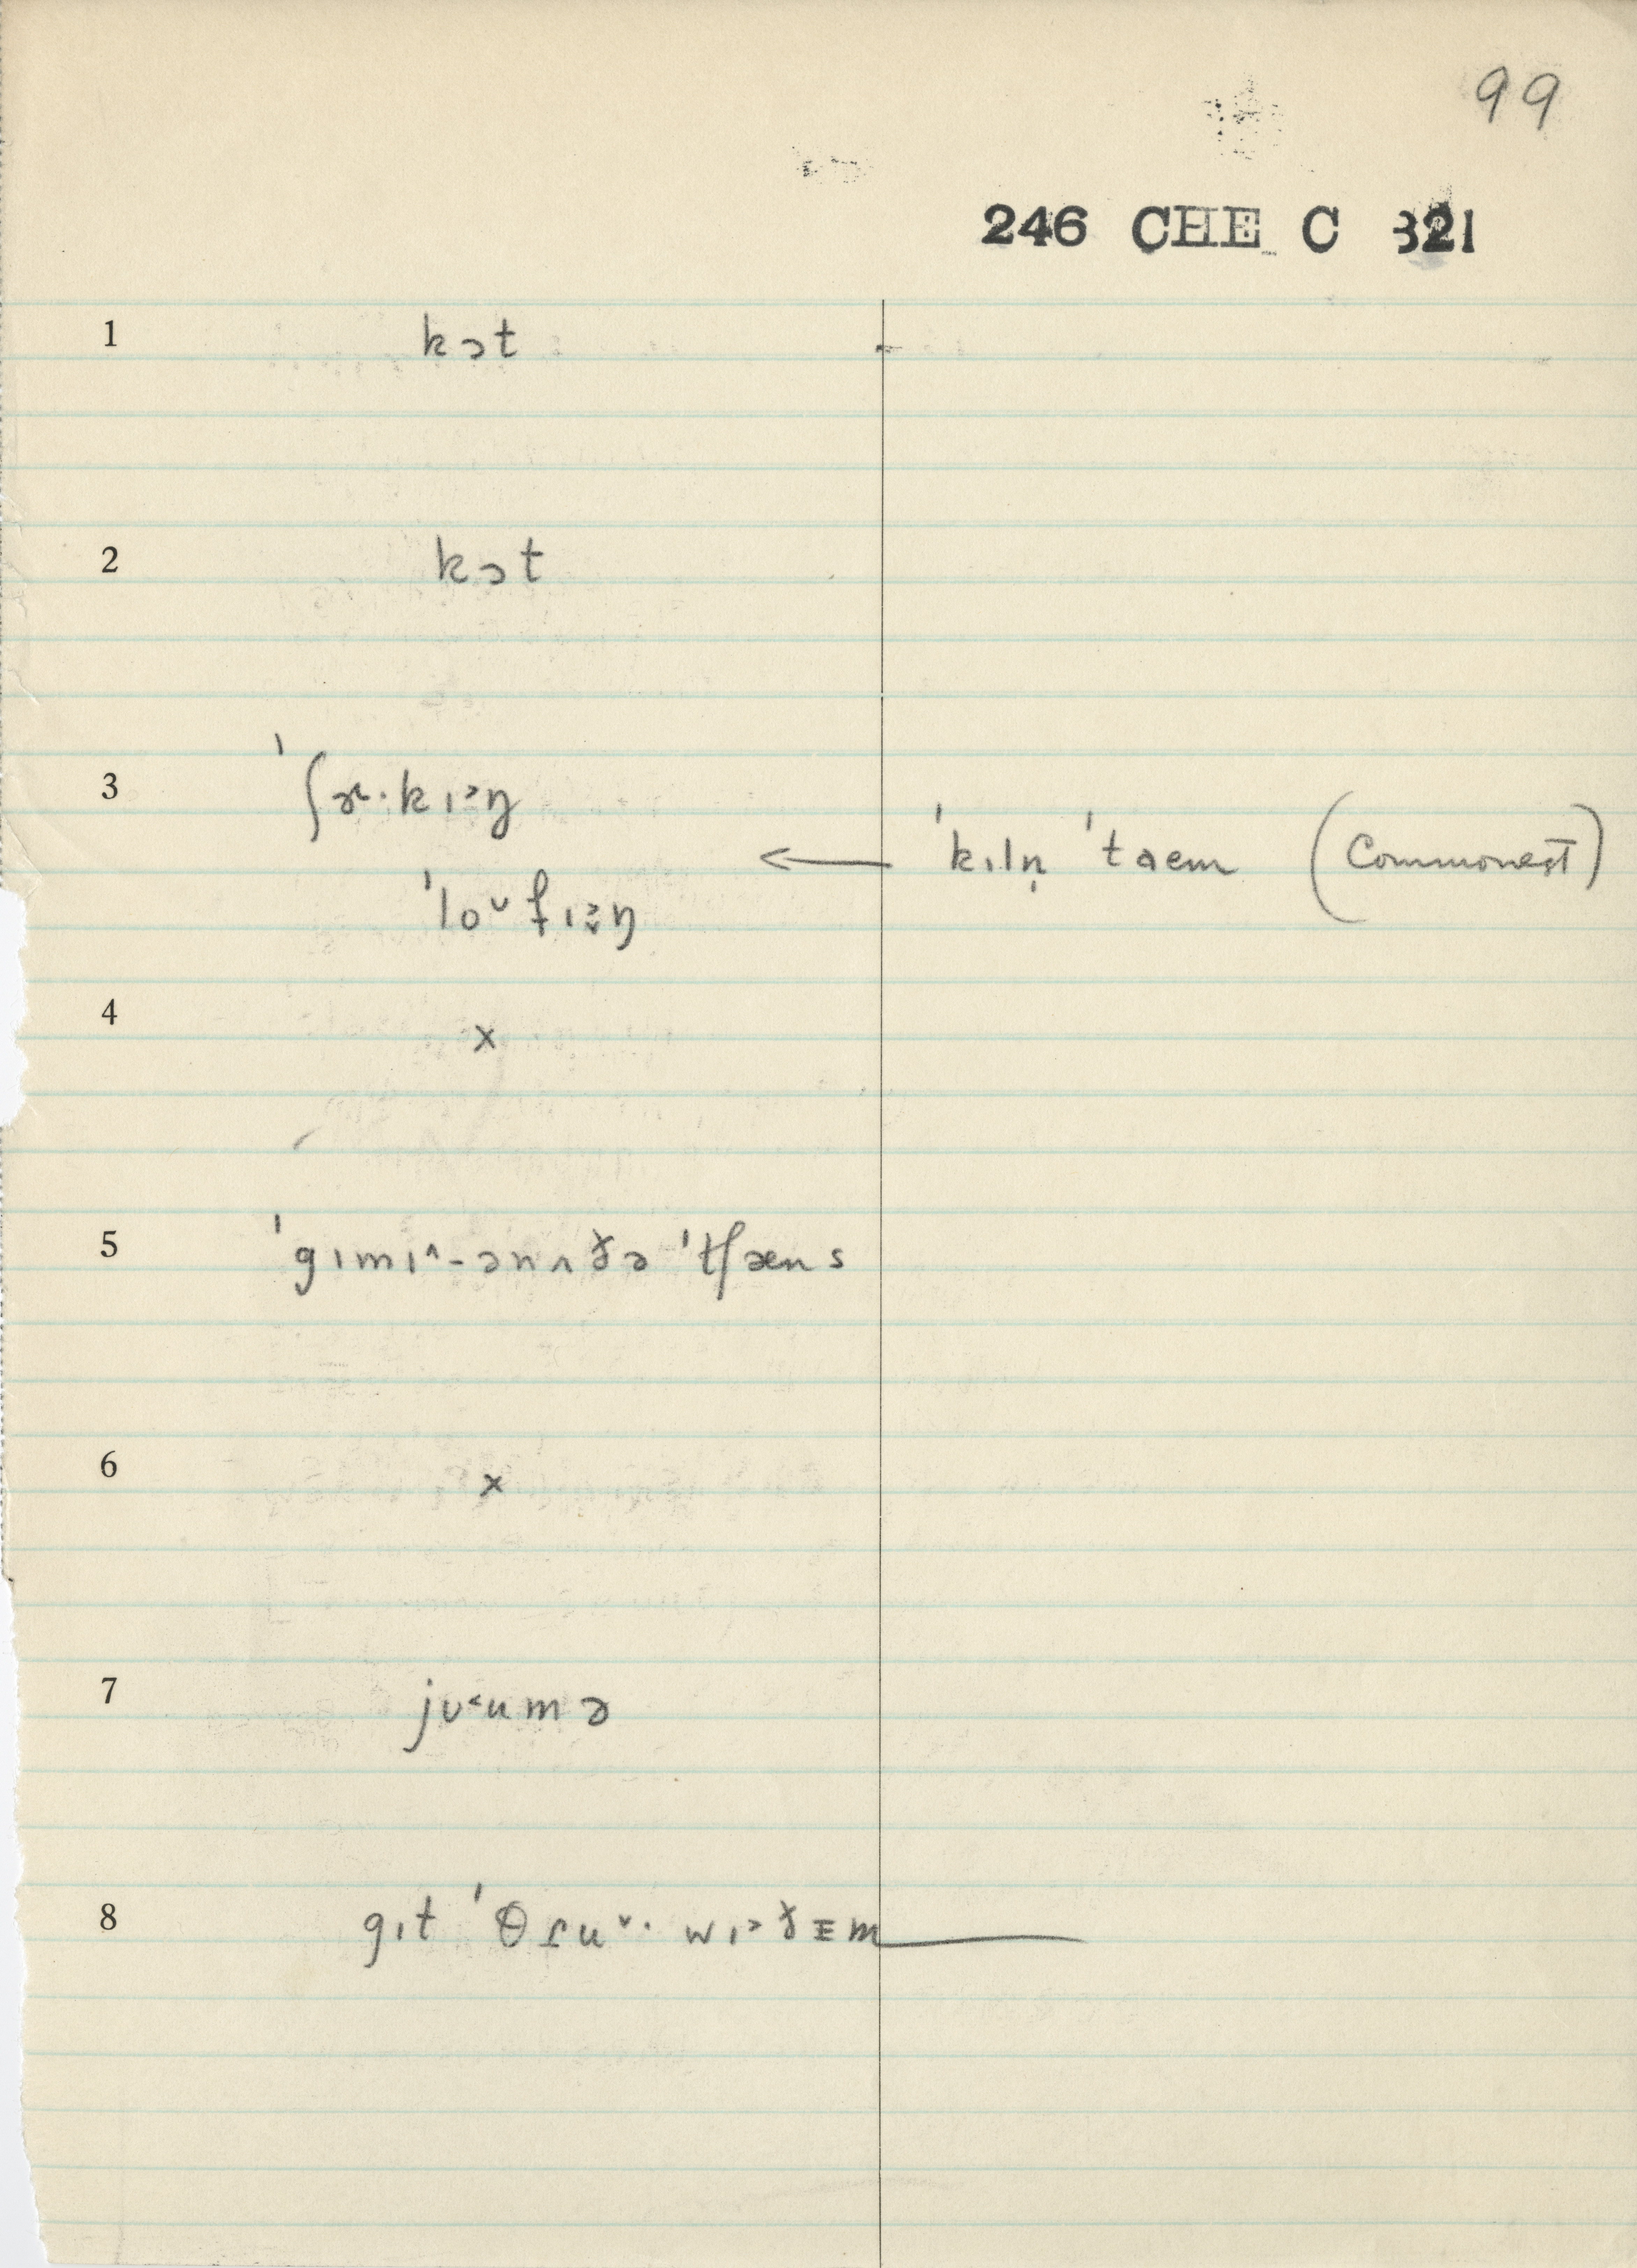 99
246 CHE C 821
1 kɔt
2 kɔt
3 ˈʃɚ·kɪ˃ŋ
← ˈkɪln̩ ˈtaem (Commonest)
ˈloᵛfɪ˃ŋ
4 x
5 ˈgɪmɪ^-ənʌðə ˈtʃæns
6 x
7 jʊ˂umə
8 gɪt ˈθɾuᵛ· wɪ˃ðᴇm